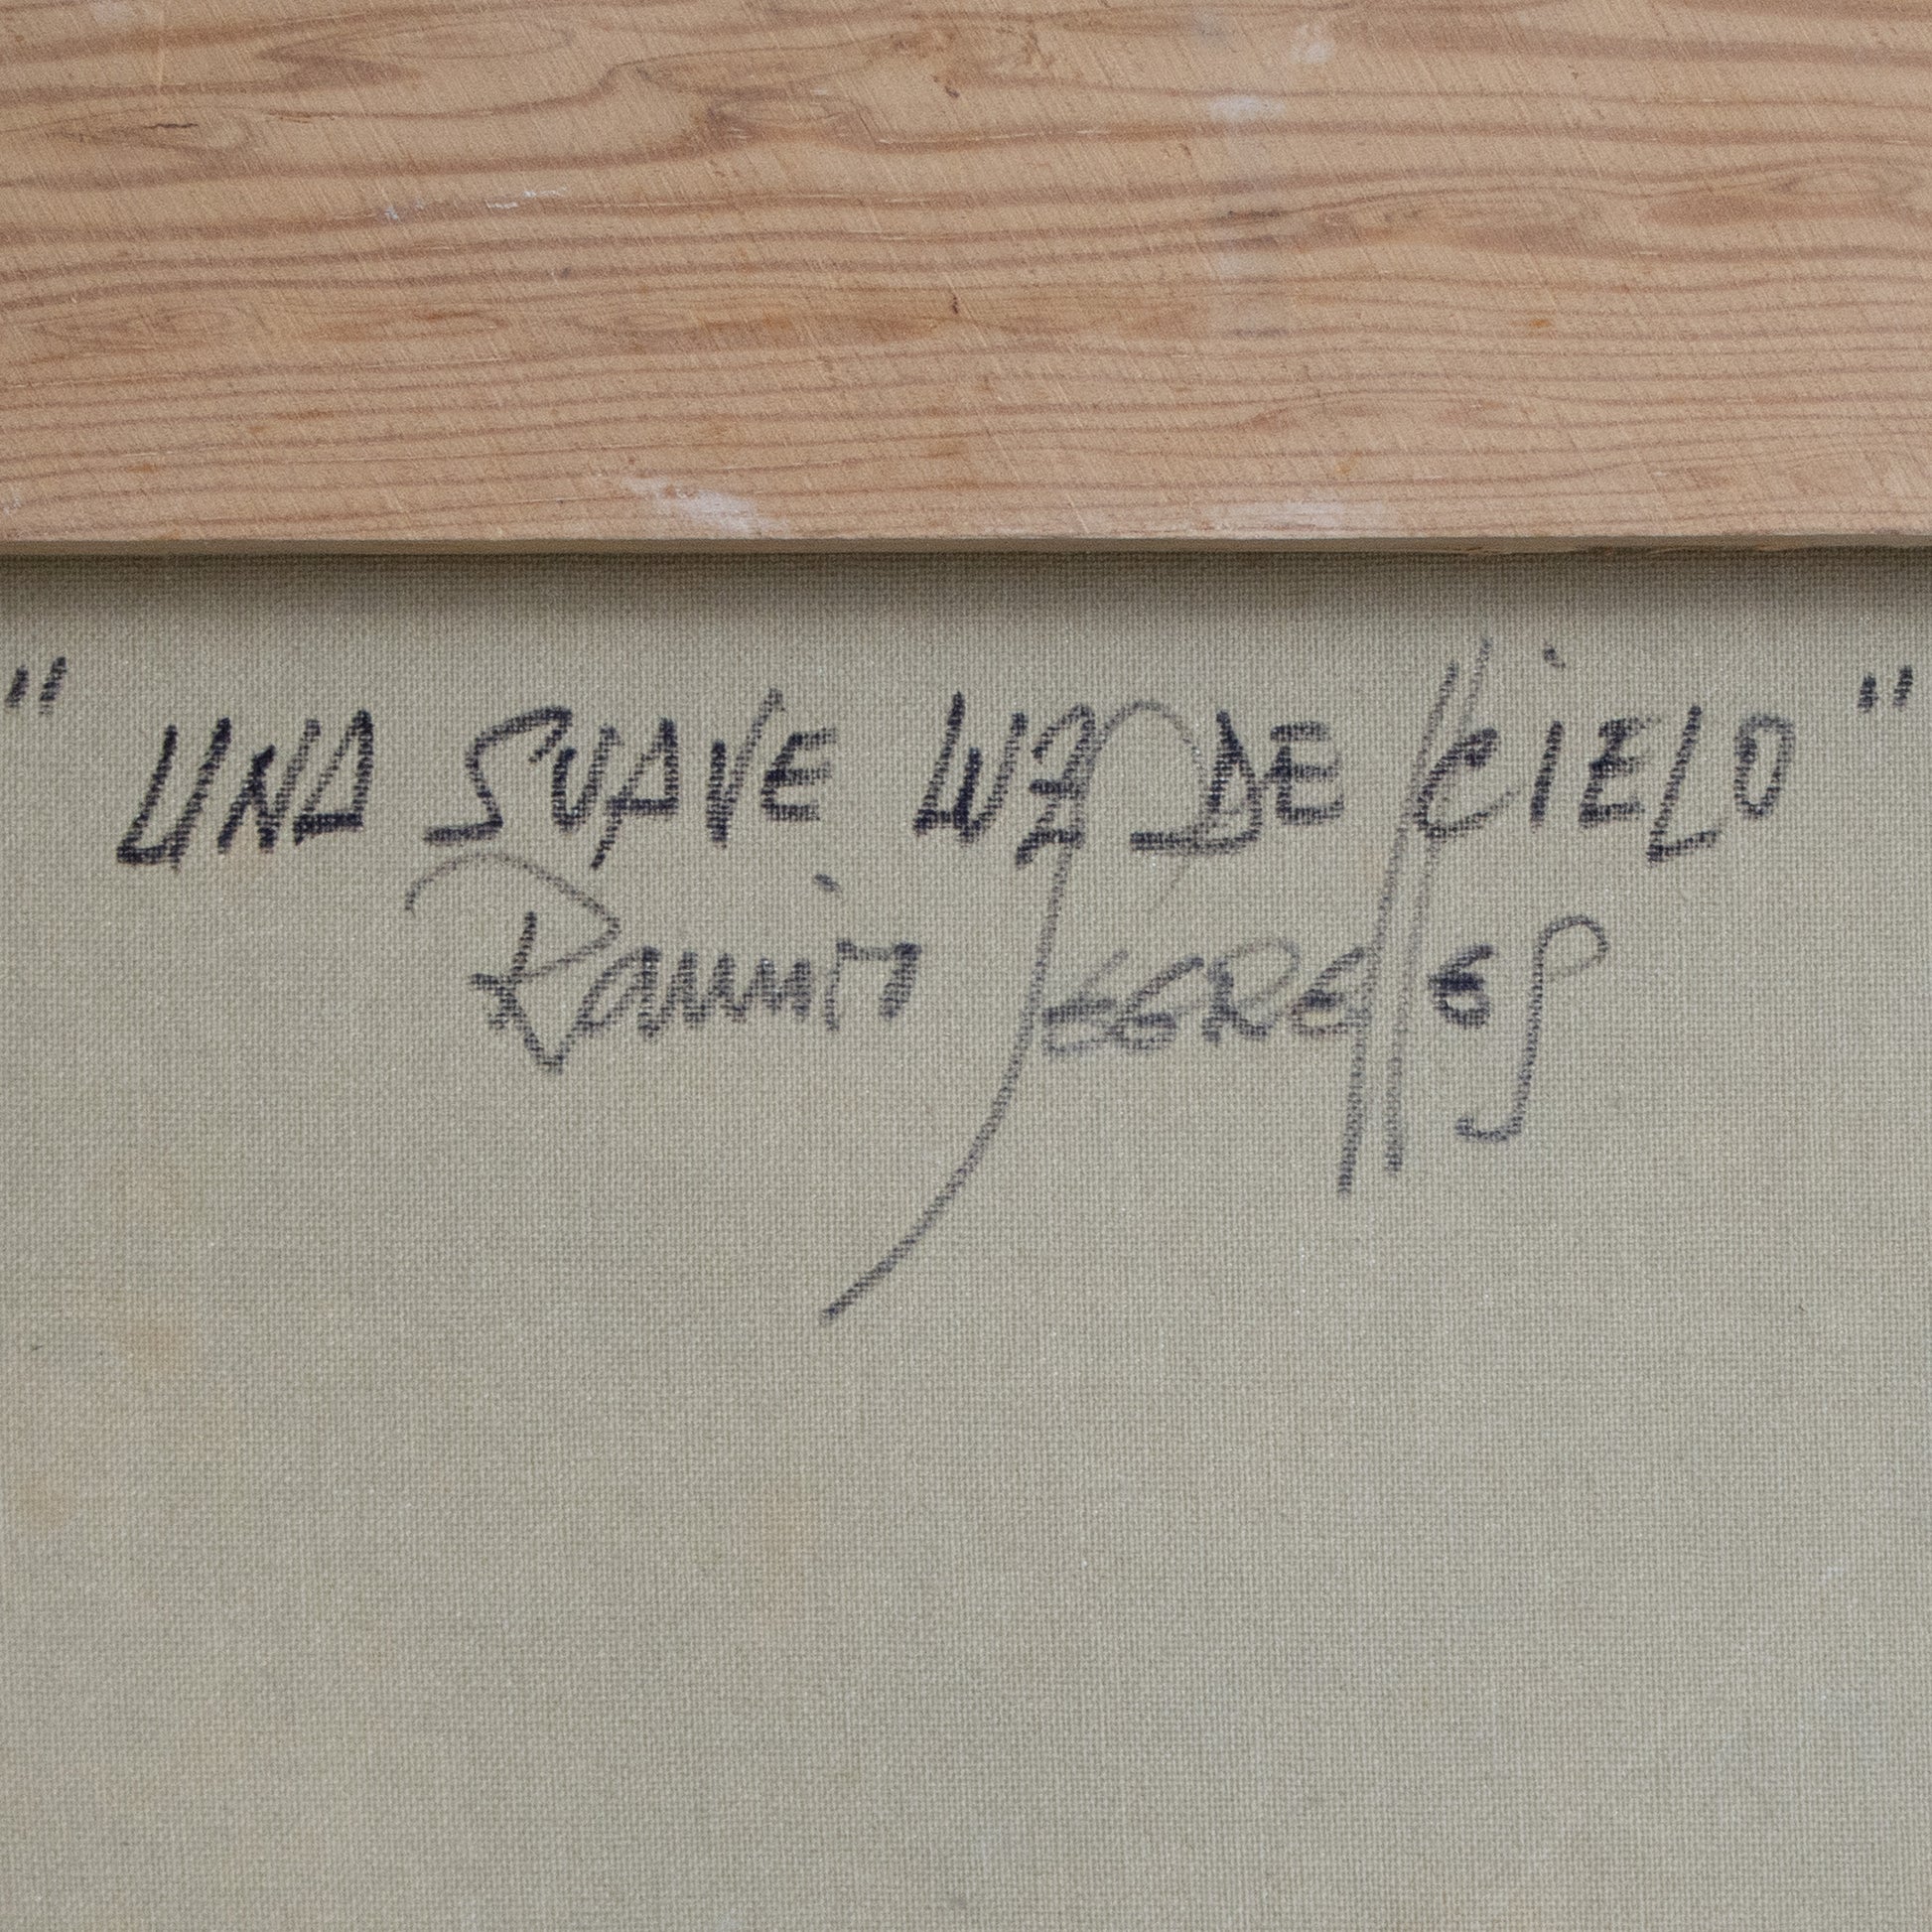 "UNA SUAVE LUZ DE CIELO"
Ramiro SEGRElleS